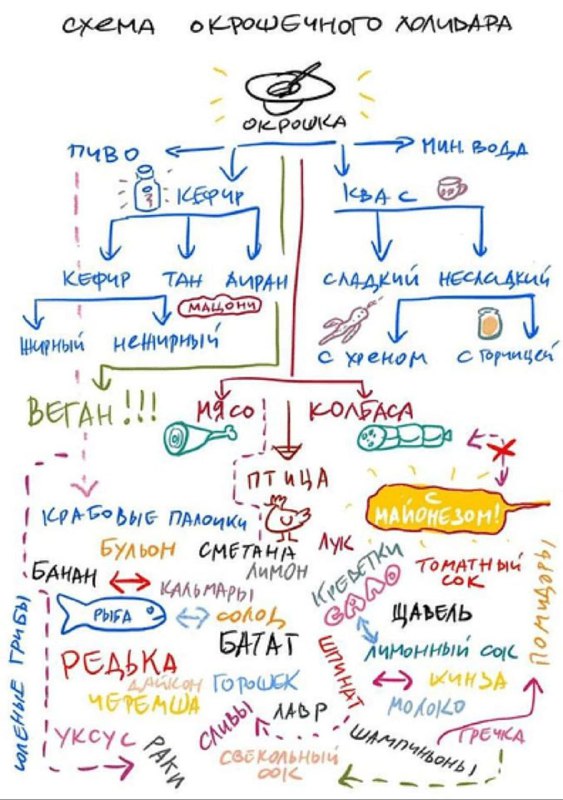 СХЕМА ОКРОШЕЧНОГО ХОЛИВАРА
ОКРОШКА
ПИВО
МИН. ВОДА
КЕФИР
КВАС
КЕФИР ТАН АИРАН
СЛАДКИЙ НЕСЛАДКИЙ
МАЦОНИ
ЖИРНЫЙ НЕЖИРНЫЙ
С ХРЕНОМ С ГОРЧИЦЕЙ
ВЕГАН!!!
МЯСО КОЛБАСА
ПТИЦА
С МАЙОНЕЗОМ!
КРАБОВЫЕ ПАЛОЧКИ
БУЛЬОН
СМЕТАНА
ЛУК
ЛИМОН
БАНАН
КАЛЬМАРЫ
КРЕВЕТКИ
САЛО
ТОМАТНЫЙ СОК
ПОМИДОРЫ
РЫБА
СОЛОД
ЩАВЕЛЬ
БАТАТ
ЛИМОННЫЙ СОК
СОЛЕНЫЕ ГРИБЫ
РЕДЬКА
ДАЙКОН
ГОРОШЕК
ШПИНАТ
КИНЗА
ЧЕРЕМША
МОЛОКО
СЛИВЫ
ЛАВР
УКСУС
РАКИ
СВЕКОЛЬНЫЙ СОК
ШАМПИНЬОНЫ
ГРЕЧКА